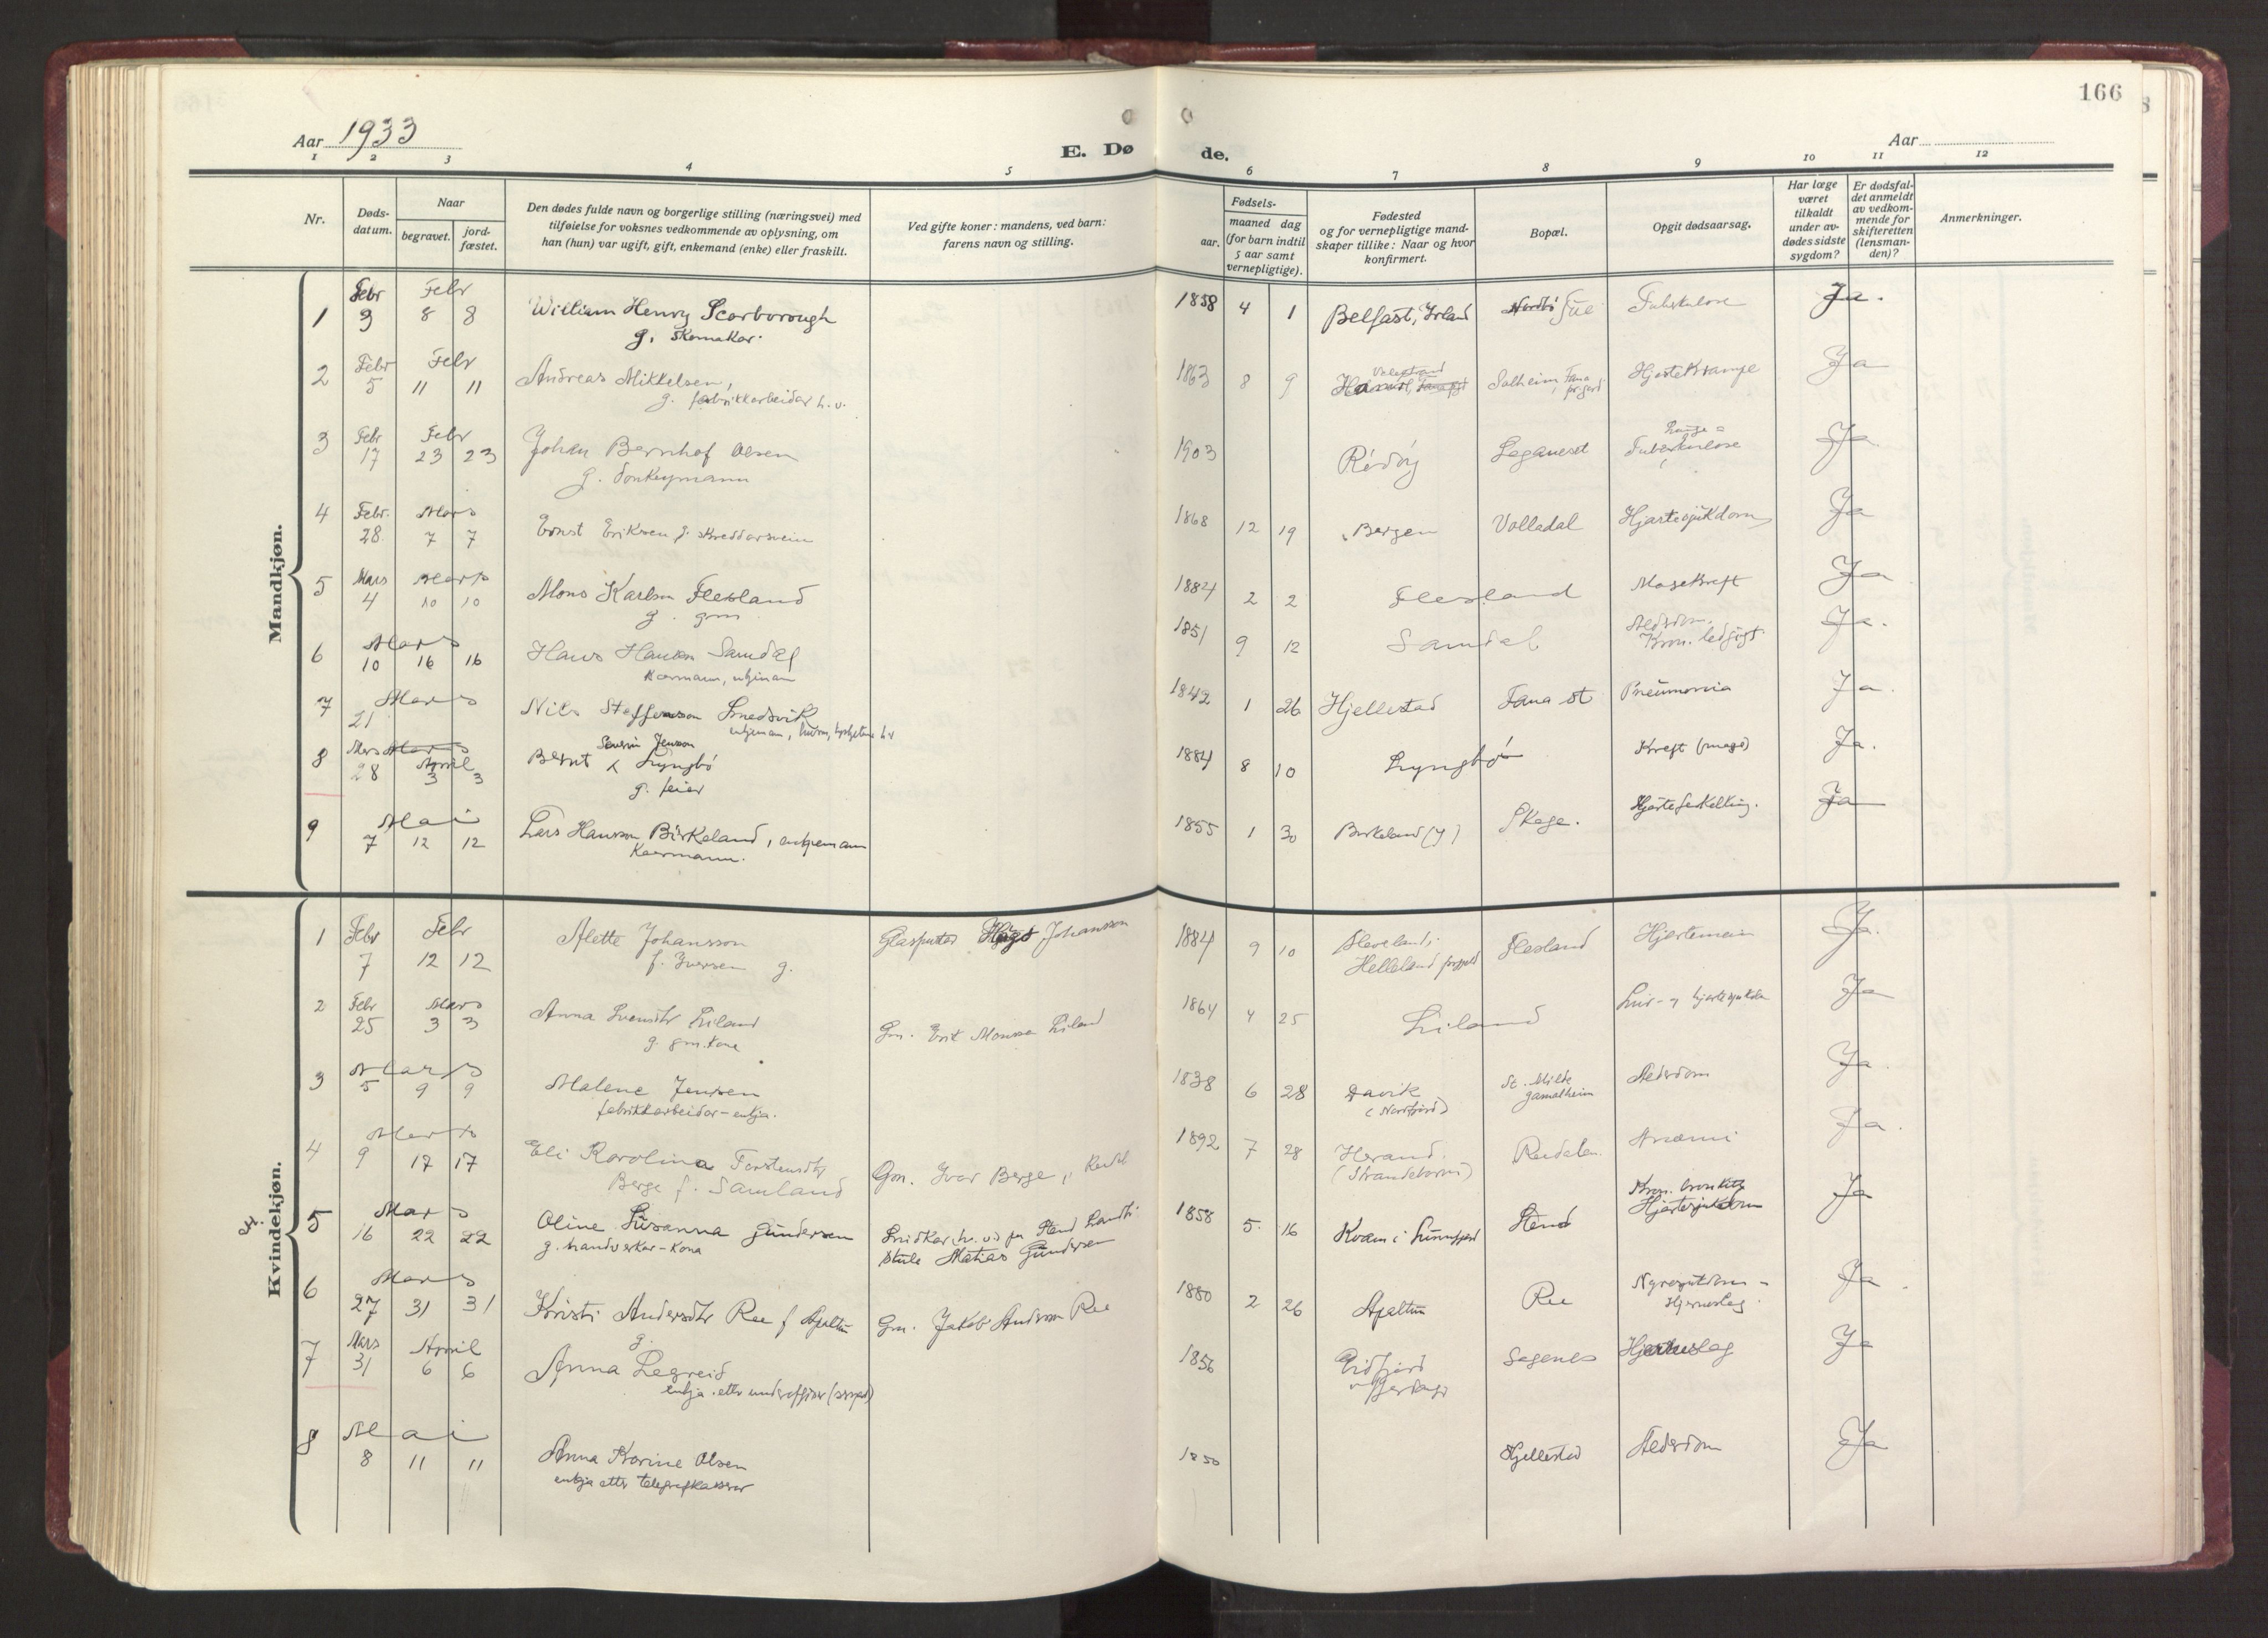 166
Aar 1933
Aar
E. Dø de.
1 2 3 4 5 6 7 8 9 10 11 12
Nr.
Døds-
datum.
Naar
begravet.
jord-
fæstet.
Den dødes fulde navn og borgerlige stilling (næringsvei) med
tilføielse for voksnes vedkommende av oplysning, om
han (hun) var ugift, gift, enkemand (enke) eller fraskilt.
Ved gifte koner: mandens, ved barn:
farens navn og stilling.
Fødsels-
aar.
maaned dag
(for barn indtil
5 aar samt
vernepligtige).
Fødested
og for vernepligtige mand-
skaper tillike: Naar og hvor
konfirmert.
Bopæl.
Opgit dødsaarsag.
Har læge
været
tilkaldt
under av-
dødes sidste
sygdom?
Er dødsfal-
det anmeldt
av vedkom-
mende for
skifteretten
(lensman-
den)?
Anmerkninger.
Mandkjøn.
1 Febr 3 Febr 8 8 William Henry Scarborough 1858 4 1 Belfast, Irland Nordbø Tuberkulose Ja.
g. skomakar.
2 Febr 5 Febr 11 11 Andreas Mikkelsen, 1863 8 9 Solheim, Fana Hjertekrampe Ja
g. fabrikkarbeidar h.v.
3 Febr 17 Febr 23 23 Johan Bernhof Olsen 1903 Rödöy Leganeset Lunge= Tuberkulose Ja
g. donkeymann
4 Febr. 28 Mars 7 7 Ernst Eriksen g. skreddarsvein 1868 12 19 Bergen Volladal Hjartesjukdom Ja
5 Mars 4 Mars 10 10 Mons Karlsen Flesland 1884 2 2 Flesland Magekreft Ja
g. grm
6 Mars 10 16 16 Hans Hansen Samdal 1851 9 12 Samdal Alderdom. Kron. ledgigt Ja.
Kaarmann, enkjemann
7 Mars 21 Nils Steffenson Smedsvik 1842 1 26 Hjellestad Fana st Pneumonia Ja.
8 Mars 28 April 3 3 Bernt Severin Jensson Lyngbö 1884 8 10 Lyngbö Kreft (mage) Ja.
g. feier
9 Mai 7 12 12 Lars Hansson Birkeland, enkjemann 1855 1 30 Birkeland (Y) Skage. Ja
Kaarmann.
Kvindekjøn.
1 Febr 7 Febr 12 12 Alette Johansson Johansson 1884 9 10 Helleland Flesland Ja.
f. Iversen g.
2 Febr 25 Mars 3 3 Anna Svensdtr Liland Gm. Erik Monsen Liland 1864 4 25 Liland Ja
g. gm. kone
3 Mars 5 9 9 Malene Jensen 1838 6 28 Davik (Nordfjord) St. Milde gamalheim Alderdom Ja
fabrikkarbeidar-enkja.
4 Mars 9 17 17 Eli Karolina Torstensdtr 1892 7 28 Herand. (Strandebarm) Raadalen Anæmi Ja.
Berge f. Samland Gm. Ivar Berge,
5 Mars 16 22 22 Oline Susanna Gundersen 1858 5 16 Kvam i Sunnfjord Stend Kron. bronkitt Hjartesjukdom Ja
g. handverkar-kona Snidkar h.v. på Stend Landbr. skule Matias Gundersen
6 Mars 27 31 31 Kristi Andersdtr Ree f Apeltun Gm. Jakob Anderson Ree 1880 2 26 Apeltun Ree Nyresjukdom - Hjerneslag Ja
g.
7 Mars 31 April 6 6 Anna Legreid 1856 Eidfjord Sagenes Hjerneslag Ja
enkja etter underoffiser
8 Mai 8 11 11 Anna Karine Olsen 1850 Hjellestad Alderdom Ja
enkja etter telegrafkasserar